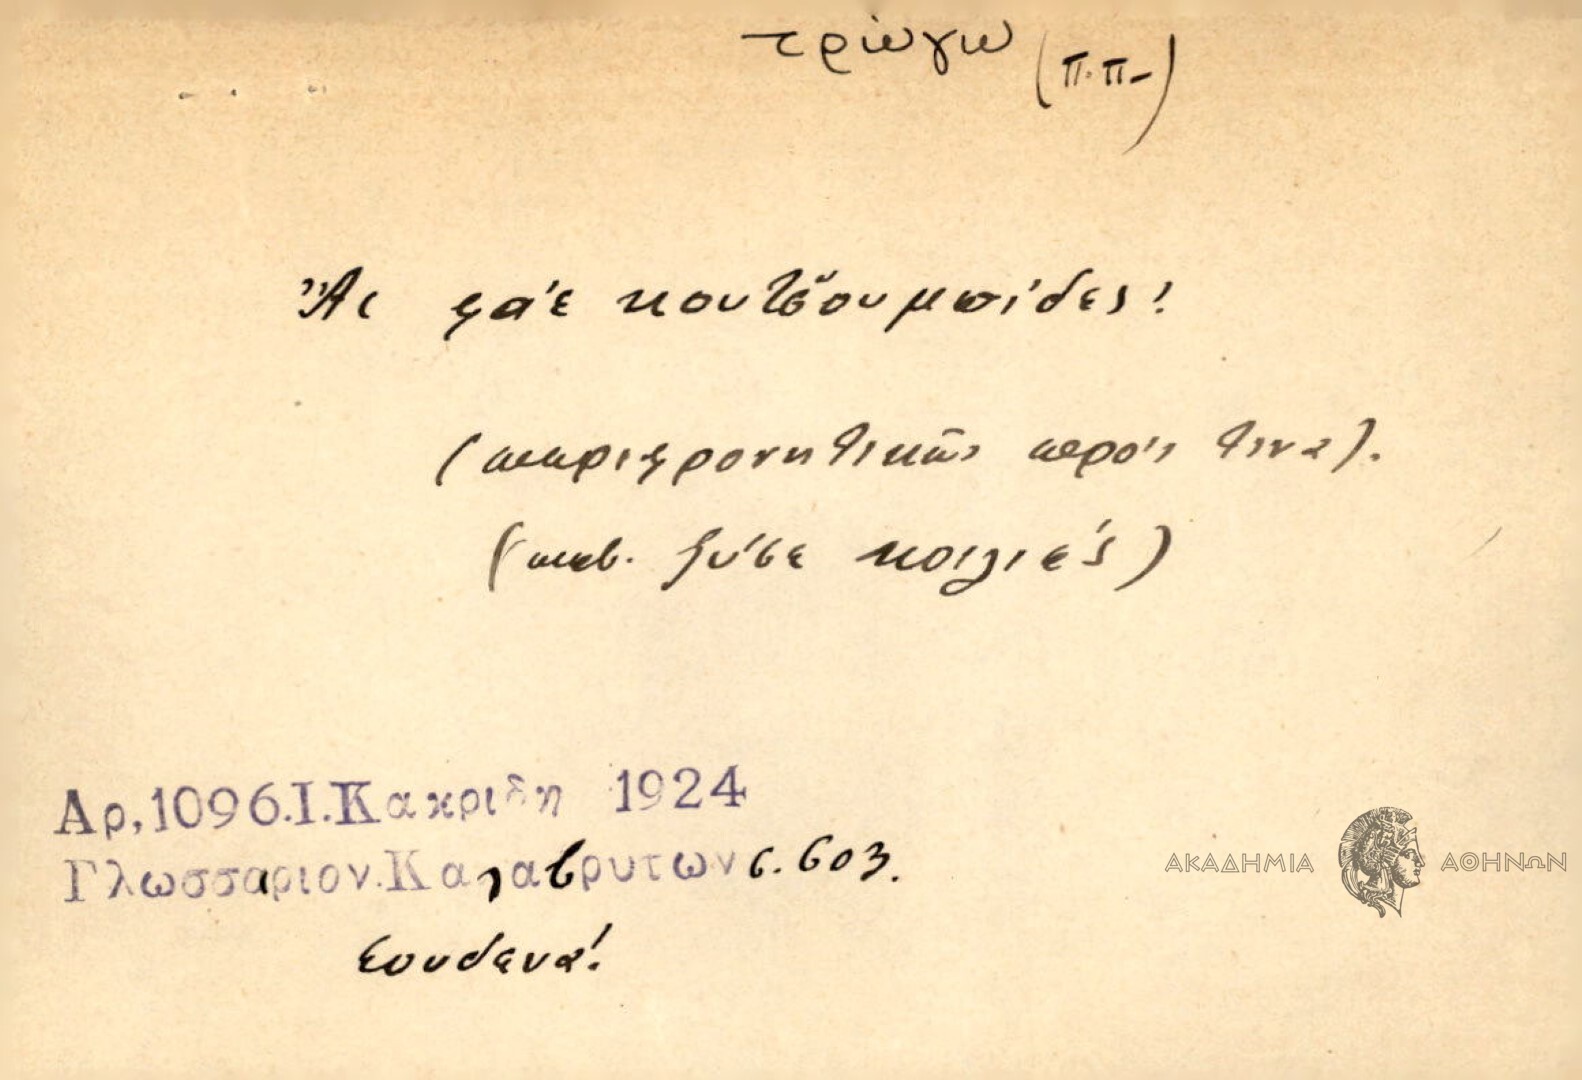 τρώγω (π.π-)
Ἂς φάε κουτσ̆ουμπίδες!
(περιφρονητικῶς πρός τινα).
(πβ. ξύσε κοιλιές)
Αρ,1096.Ι.Κακριδη 1924
Γλωσσαριον.Καλαβρυτων σ. 603.
Σουδενα!
ΑΚΑΔΗΜΙΑ ΑΘΗΝΩΝ